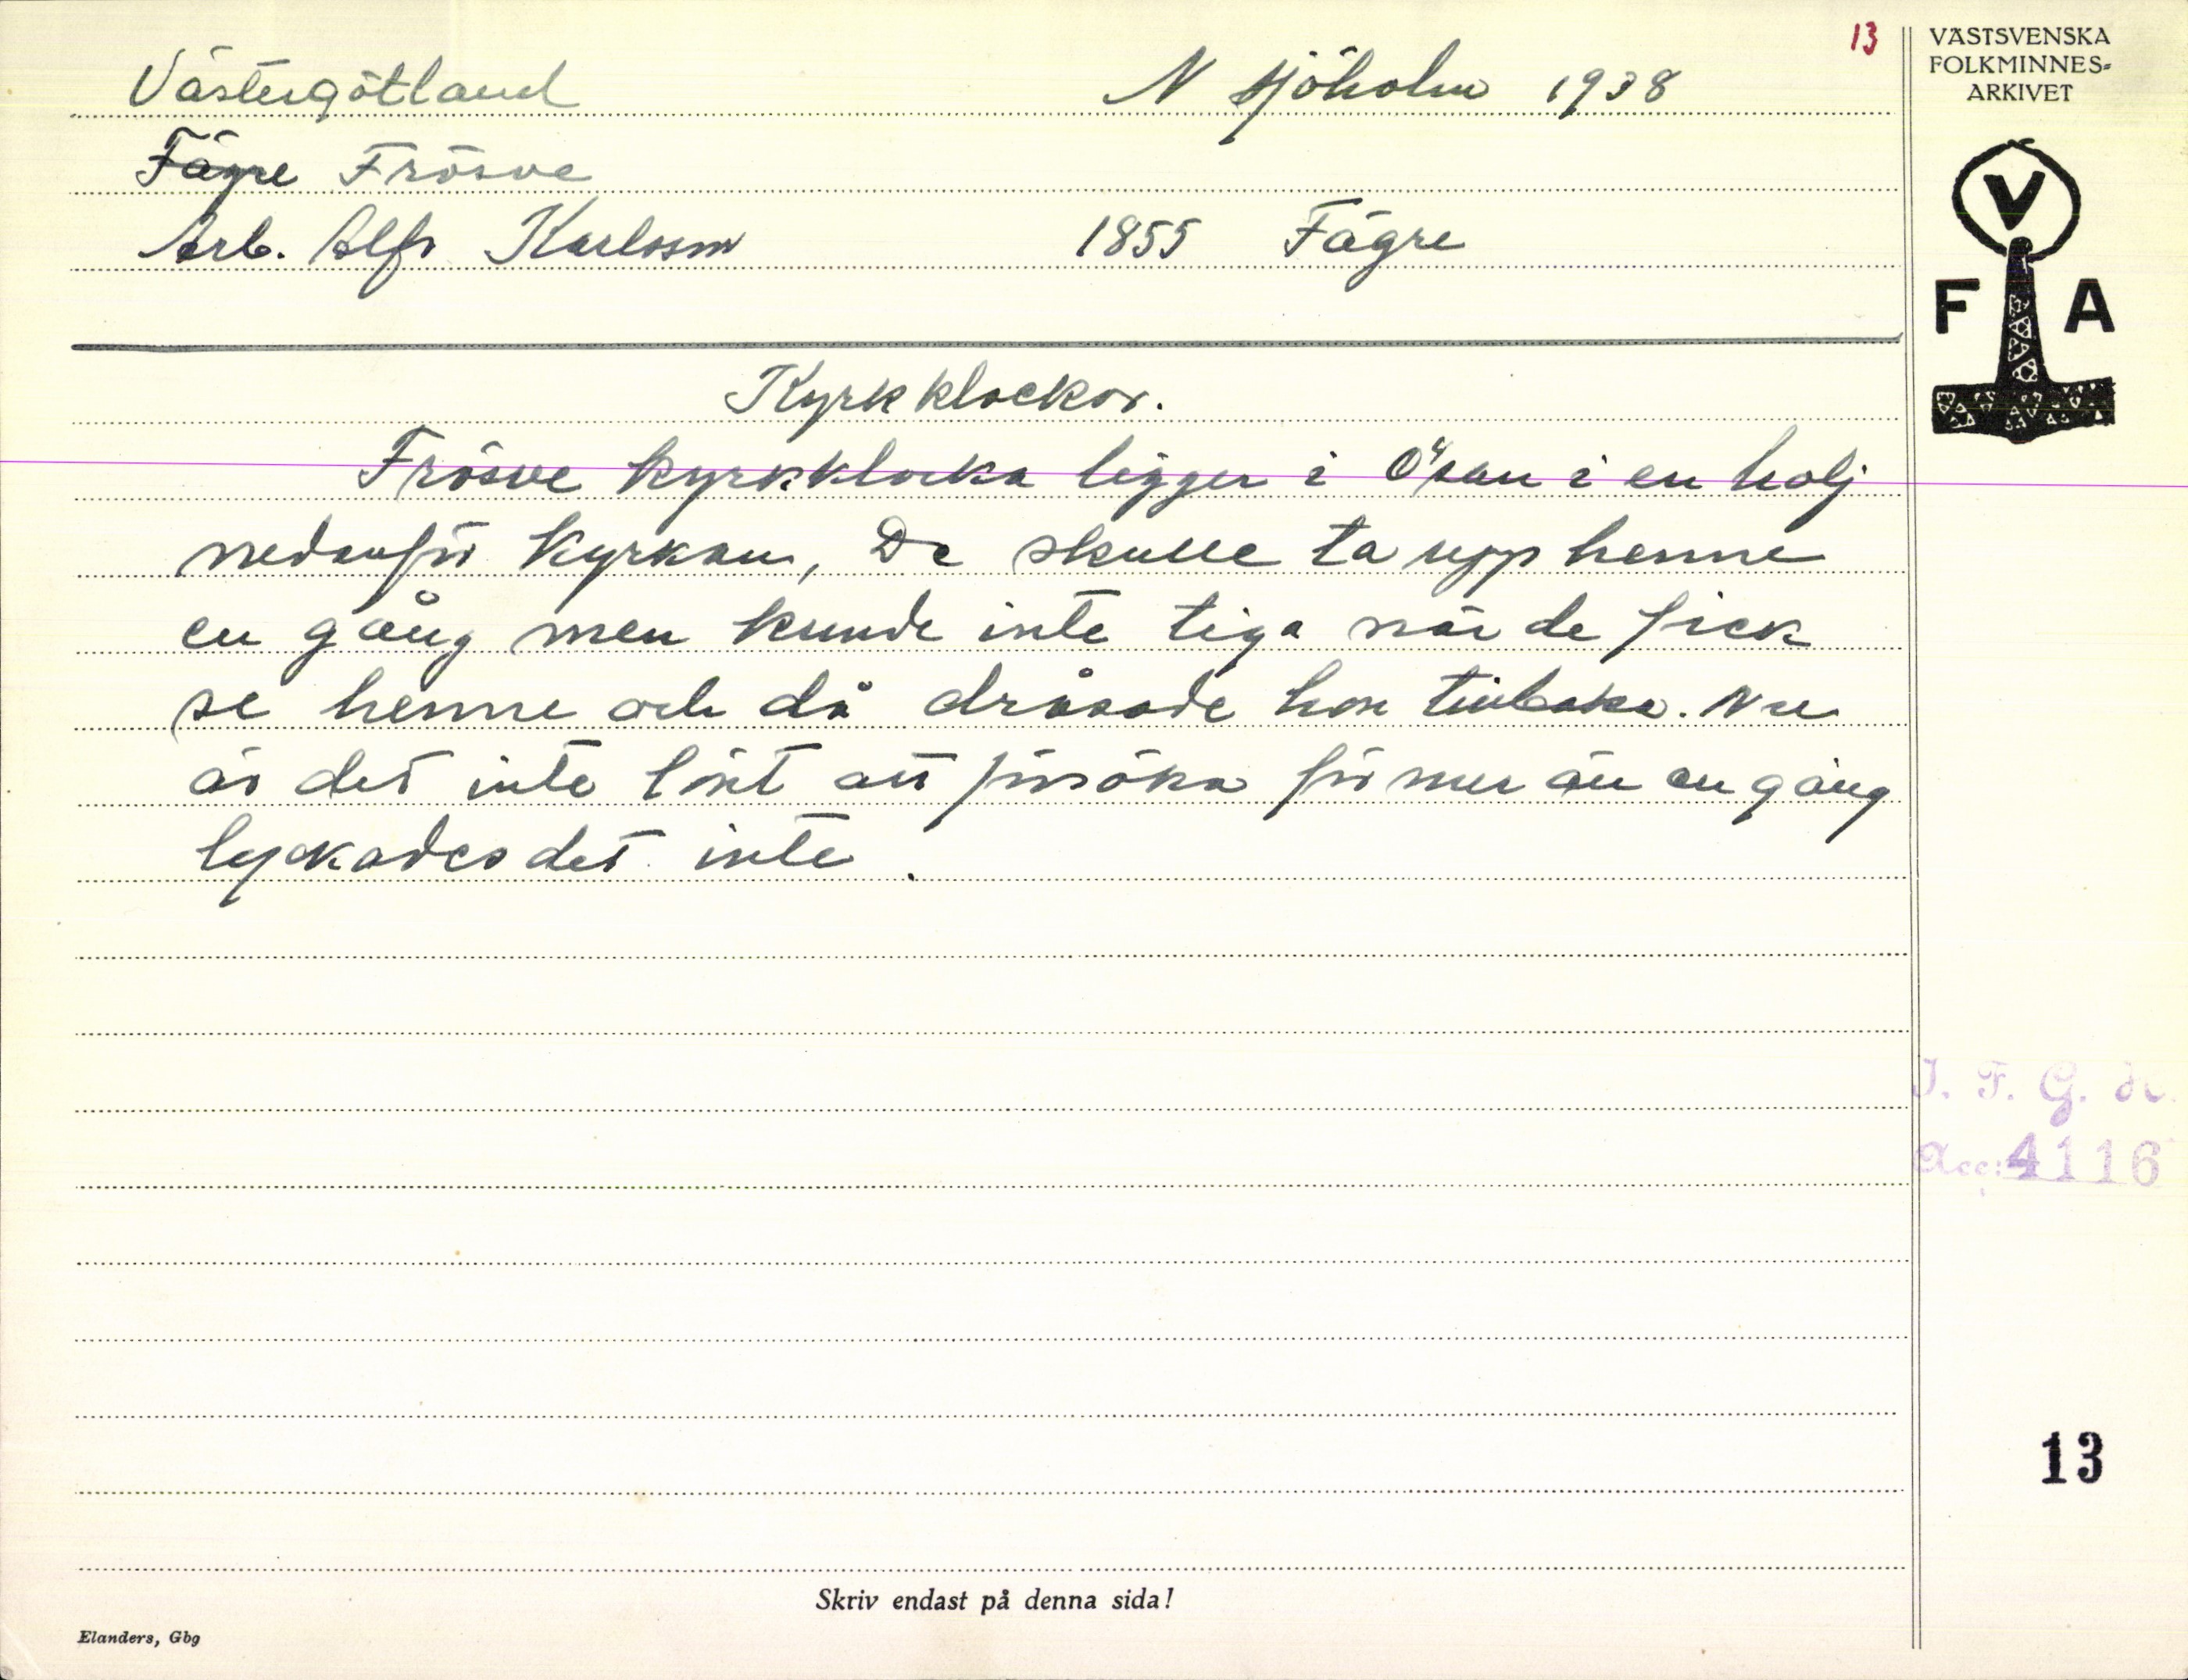 13
Västergötland N Sjöholm 1938
Fägre Frösve
Arb. Alfr Karlsson 1855 Fägre
Kyrkklockor.
Frösve kyrkklocka ligger i Ösan i en holj
nedanför kyrkan, De skulle ta upp henne
en gång men kunde inte tiga när de fick
se henne och då dråsade hon tillbaka. Nu
är det inte lönt att försöka för mer än en gång
lyckades det inte.
VÄSTSVENSKA
FOLKMINNES-
ARKIVET
V
F A
I. F. G. H.
Acc: 4116
13
Skriv endast på denna sida!
Elanders, Gbg